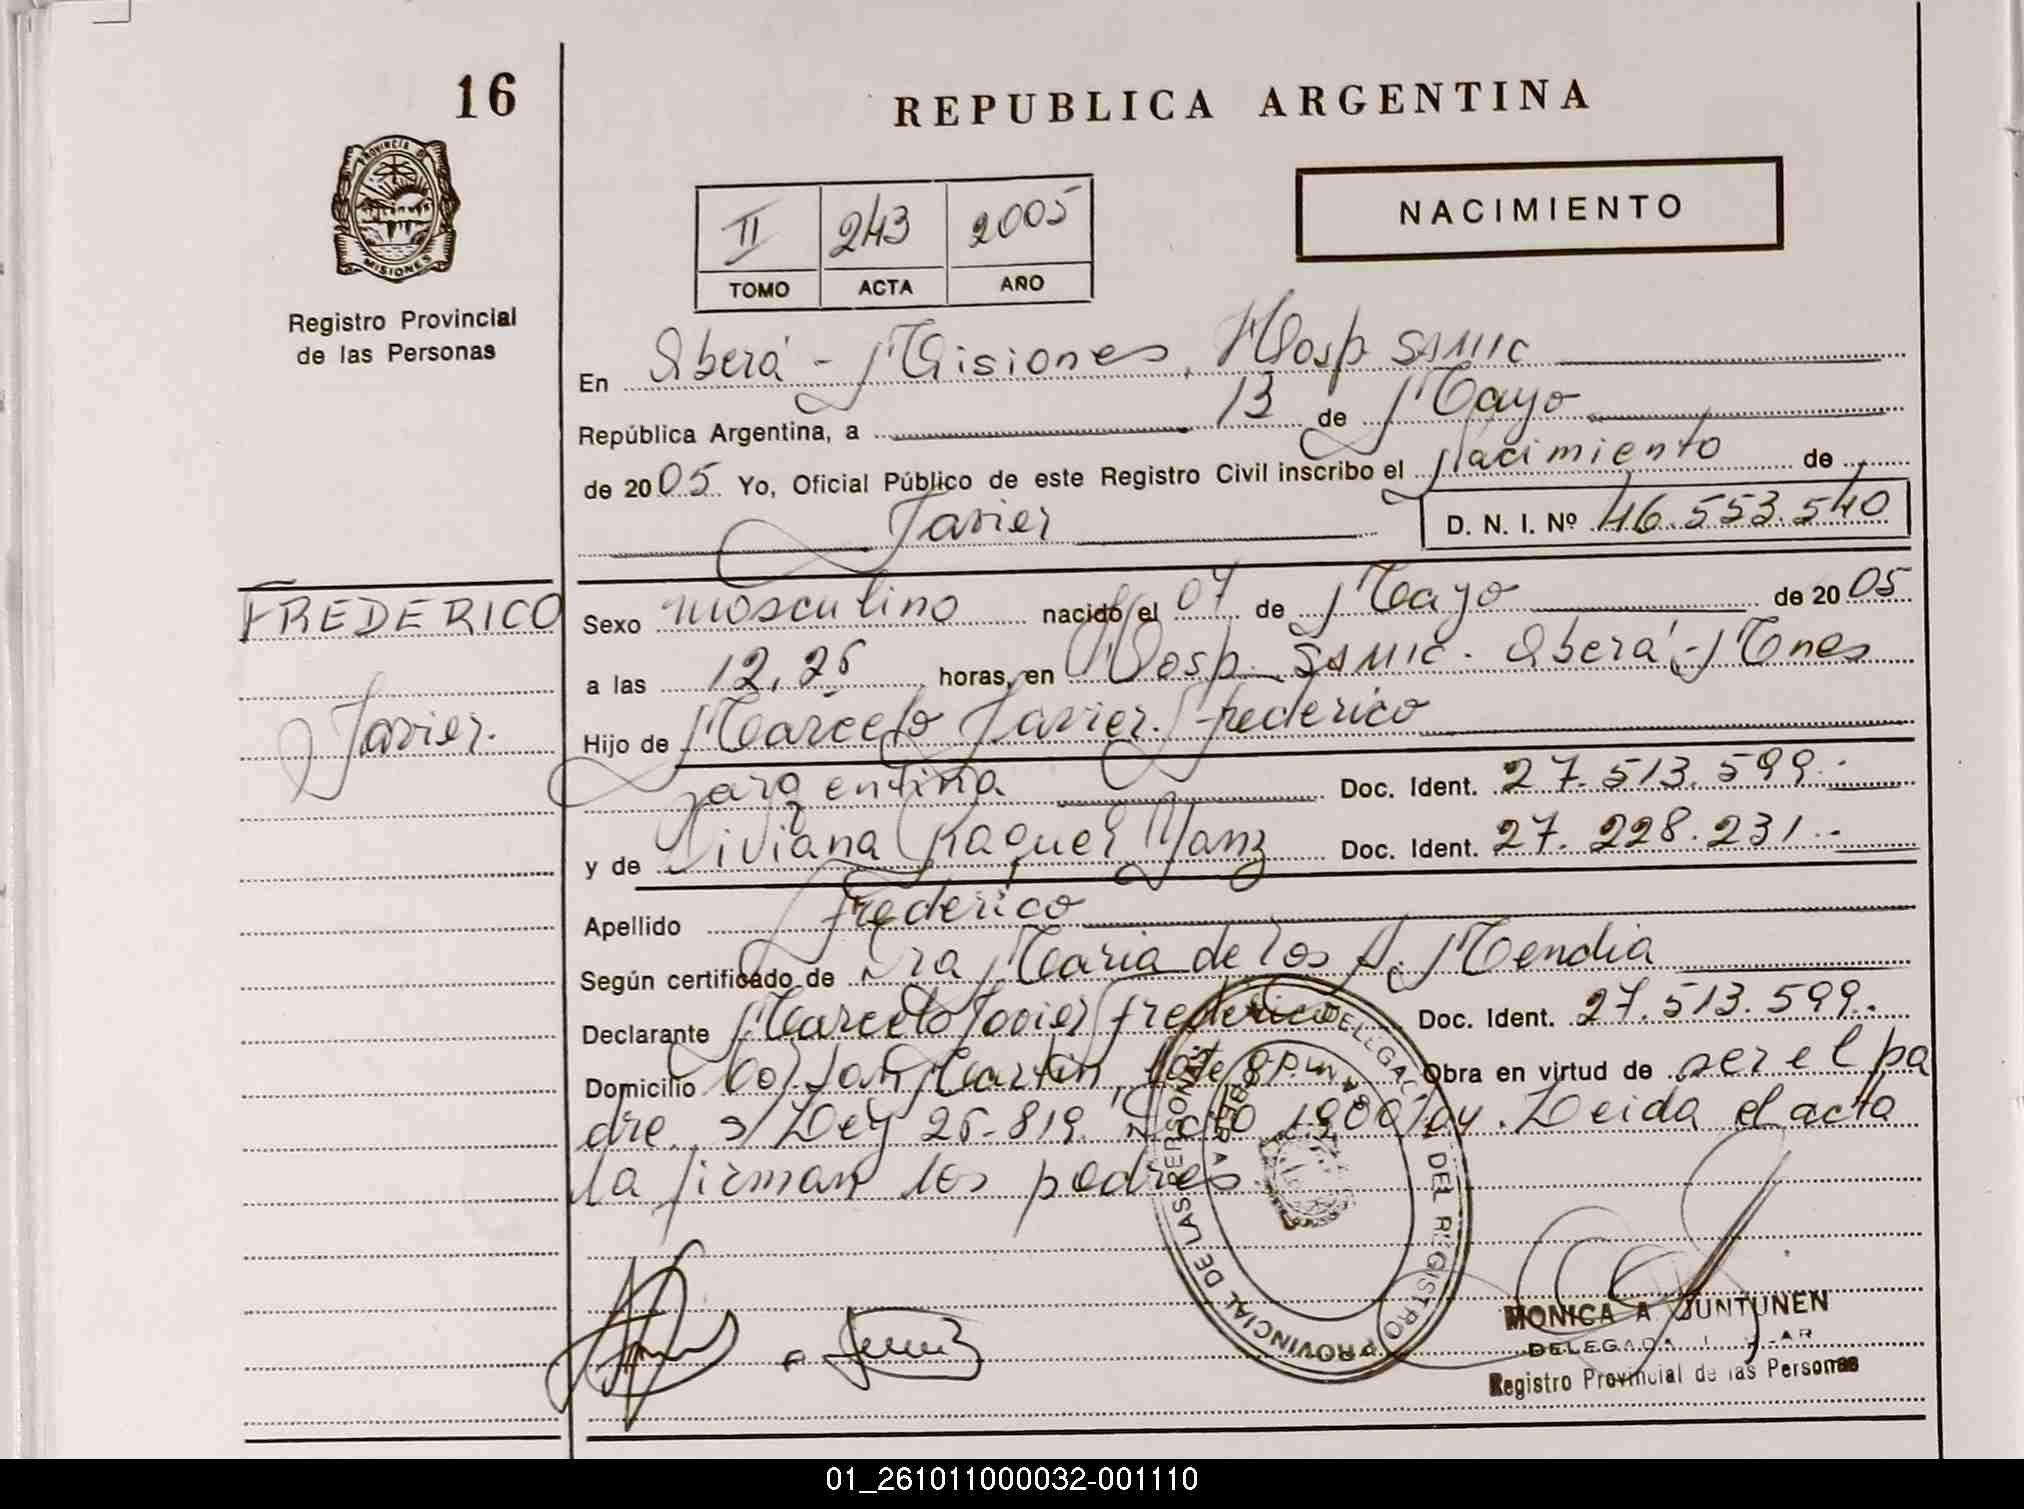 16
REPUBLICA ARGENTINA
PROVINCIA DE
MISIONES
Registro Provincial
de las Personas
II 243 2005
TOMO ACTA AÑO
NACIMIENTO
En Oberá - Misiones, Hosp SAMIC
República Argentina, a 13 de Mayo
de 2005 Yo, Oficial Público de este Registro Civil inscribo el Nacimiento de
Javier D. N. I. Nº 46.553.540
FREDERICO
Javier.
Sexo masculino nacido el 07 de Mayo de 2005
a las 12,25 horas, en Hosp. SAMIC. Oberá - Mnes
Hijo de Marcelo Javier Frederico
argentina Doc. Ident. 27.513.599.-
y de Viviana Raquel Manz Doc. Ident. 27.228.231.-
Apellido Frederico
Según certificado de Dra Maria de los A. Mendia
Declarante Marcelo Javier Frederico Doc. Ident. 27.513.599.-
Domicilio Col San Martin, lote 8 Obra en virtud de ser el pa
dre s/ Ley 25-819 Dcto Leida el acta
la firman los padres
DELEGAC DEL REGISTRO PROVINCIAL DE LAS PERSONAS
OBERA
MONICA A. JUNTUNEN
DELEGADA
Registro Provincial de las Personas
01_261011000032-001110